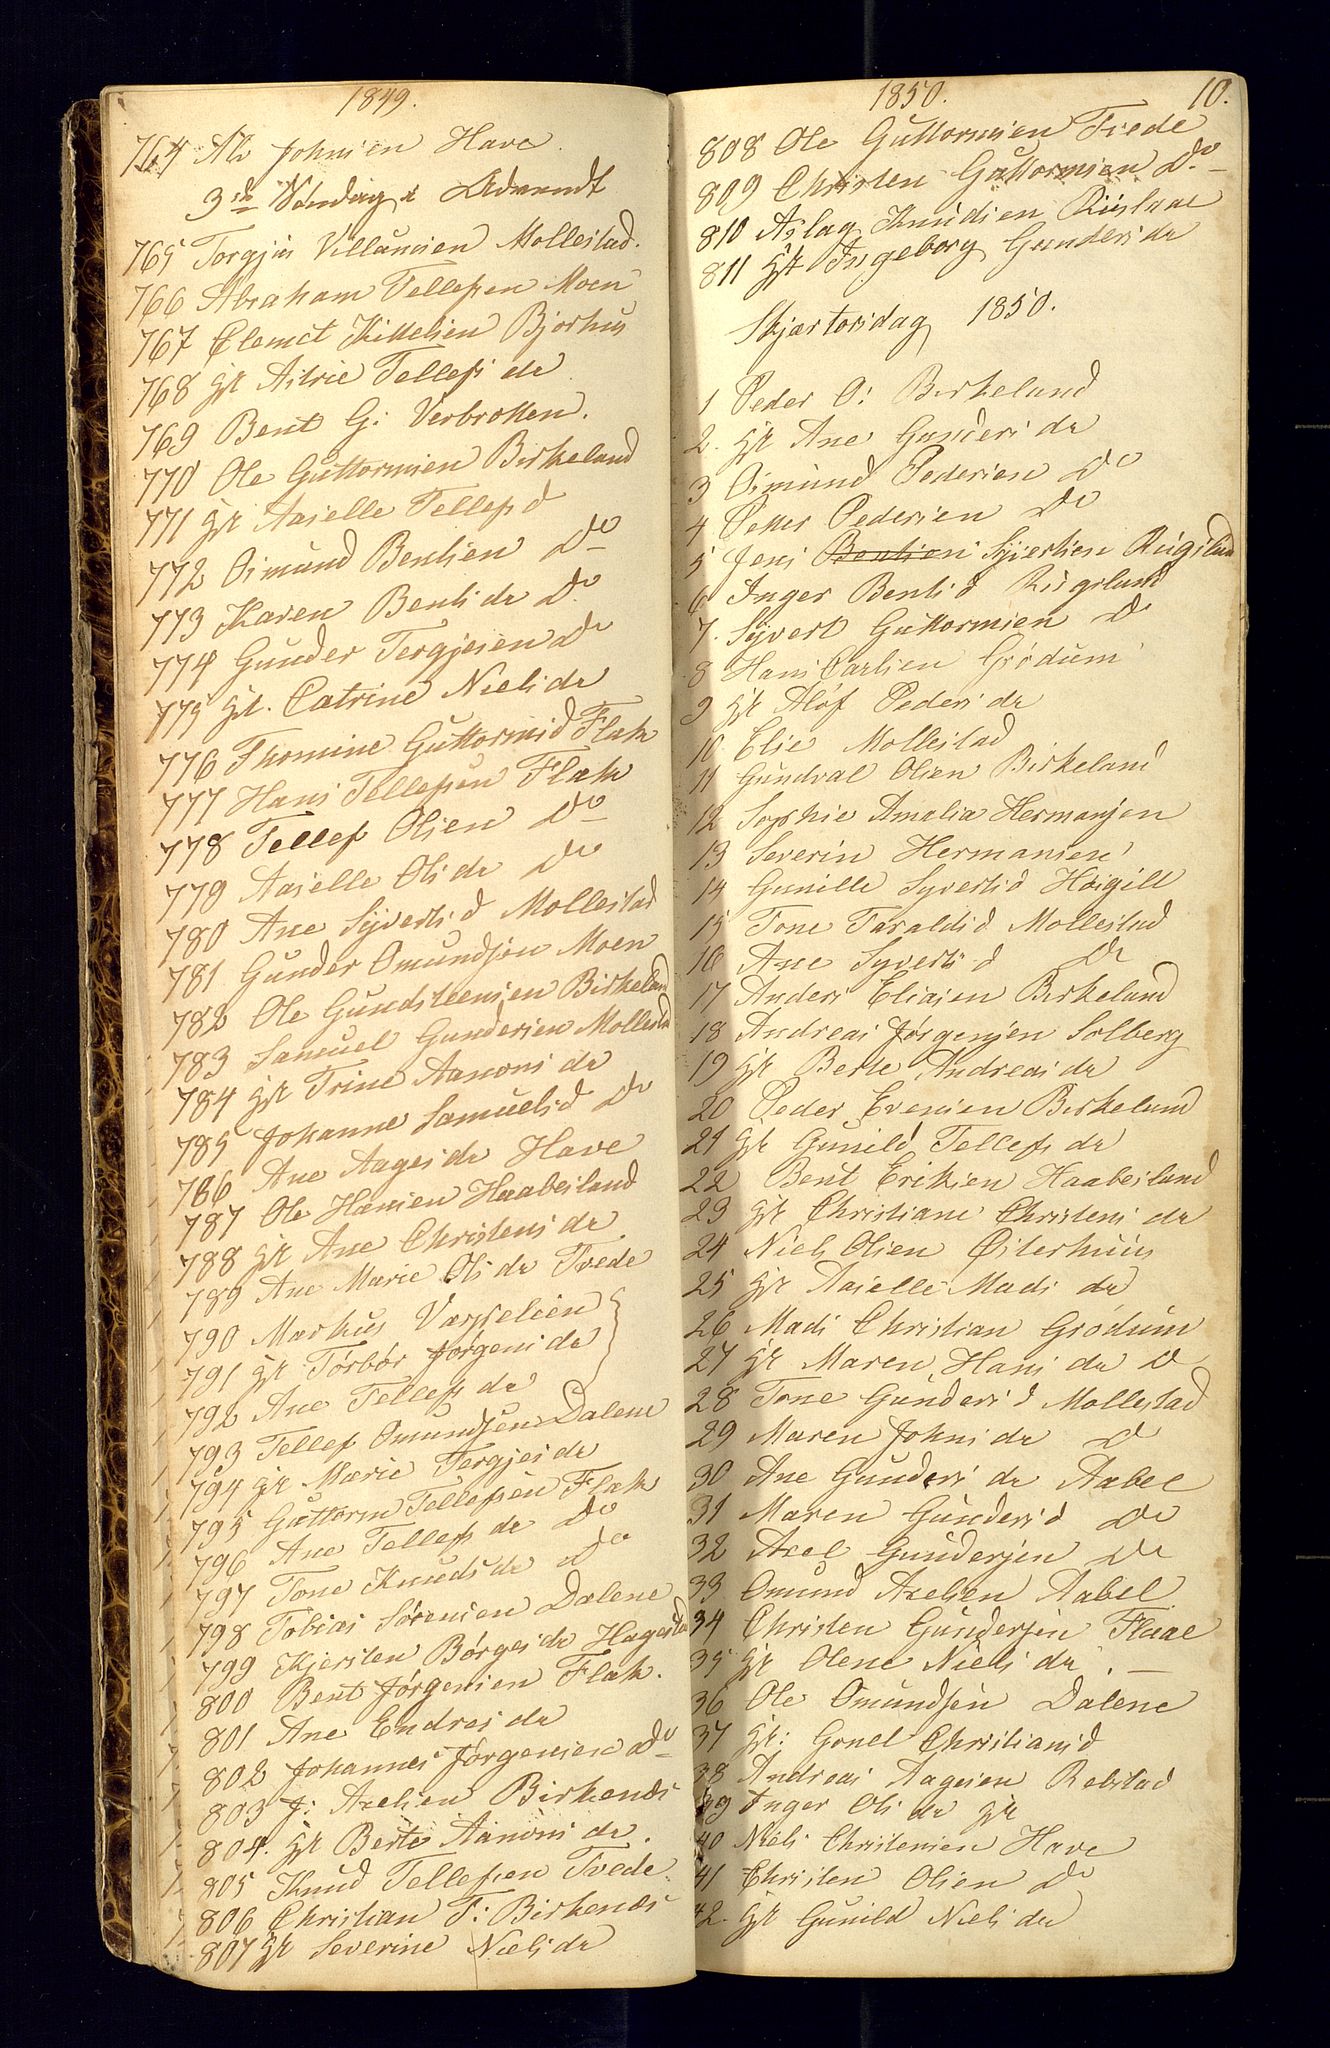 1849.
764 Ale Johnsen Have
3die Søndag i Advendt
765 Torgjus Villumsen Mollestad.
766 Abraham Tellefsen Moen
767 Clemet Kittelsen Bjorhus
768 gst Asbrie Tellefs da
769 Bent G: Verbrotten.
770 Ole Guttormsen Birkeland
771 gst Aaselle Tellefsd
772 Osmund Bentsen Do
773 Karen Bents da Do
774 Gunder Tergjesen Do
775 gst. Catrine Niels da
776 Thomine Guttormsd Flak
777 Hans Tellefsen Flak
778 Tellef Olsen Do
779 Aaselle Ols da Do
780 Ane Syvertsd Mollestad
781 Gunder Omundsen Moen
782 Ole Gundsteensen Birkeland
783 Samuel Gundersen Mollestad
784 gst Trine Aanons da
785 Johanne Samuelsd Do
786 Ane Aages da Have
787 Ole Hansen Haabesland
788 gst Ane Christens da
789 Ane Marie Ols da Tvede
790 Markus
791 gst Torbør Jørgens da
792 Ane Tellefs da
793 Tellef Omundsen Dalene
794 gst Marie Tergjes da
795 Guttorm Tellefsen Flak
796 Ane Tellefs da Do
797 Tone Knuds da Do
798 Tobias Sørensen Dalene
799 Kjersten Børges da Hagestad
800 Bent Jørgensen Flak.
801 Ane Endres da
802 Johannes Jørgensen Do
803 J: Axelsen Birkenæs
804. gst Berte Aanons da.
805 Knud Tellefsen Tvede
806 Christian T: Birkenæs
807 gst Severine Niels da
1850.
10.
808 Ole Guttormsen Tvede
809 Christen Guttormsen Do
810 Aslag Knudsen Rislaae
811 gst Ingeborg Gunders da
Skjærtorsdag 1850.
1 Peder O: Birkeland
2. gst Ane Gunders da
3 Osmund Pedersen Do
4 Petter Pedersen Do
5 Jens Bentsen Syvertsen Rugslad
6 Inger Bentsd Rugslund
7. Syvert Guttormsen Do
8 Hans Carlsen Grødum
9 gst Aløf Peders da
10 Elie Mollestad
11 Gundval Olsen Birkeland
12 Sophie Amalia Hermansen
13 Severin Hermansen
14 Gunille Syvertsd Høigilt
15 Tone Taraldsd Mollestad
16 Ane Syvertsd Do
17 Anders Eliasen Birkeland
18 Andreas Jørgensen Solberg
19 gst Berte Andreas da
20 Peder Evensen Birkeland
21 gst Gunild Tellefs da
22 Bent Eriksen Haabesland
23 gst Christiane Christens da
24 Niels Olsen Østerhuus
25 gst Aaselle Mads da
26 Mads Christian Grødum
27 gst Maren Hans da Do
28 Tone Gundersd Mollestad
29 Maren Johns da Do
30 Ane Gunders da Aabel
31 Maren Gundersd Do
32 Axel Gundersen Do
33 Omund Axelsen Aabel
34 Christen Gundersen Flaae
35 gst Olene Niels da. —
36 Ole Omundsen Dalene
37 gst: Gonel Christiansd
38 Andreas Aagesen Rebstad
39 Inger Ols da gst
40 Niels Christensen Have
41 Christen Olsen Do
42. gst Gunild Niels da